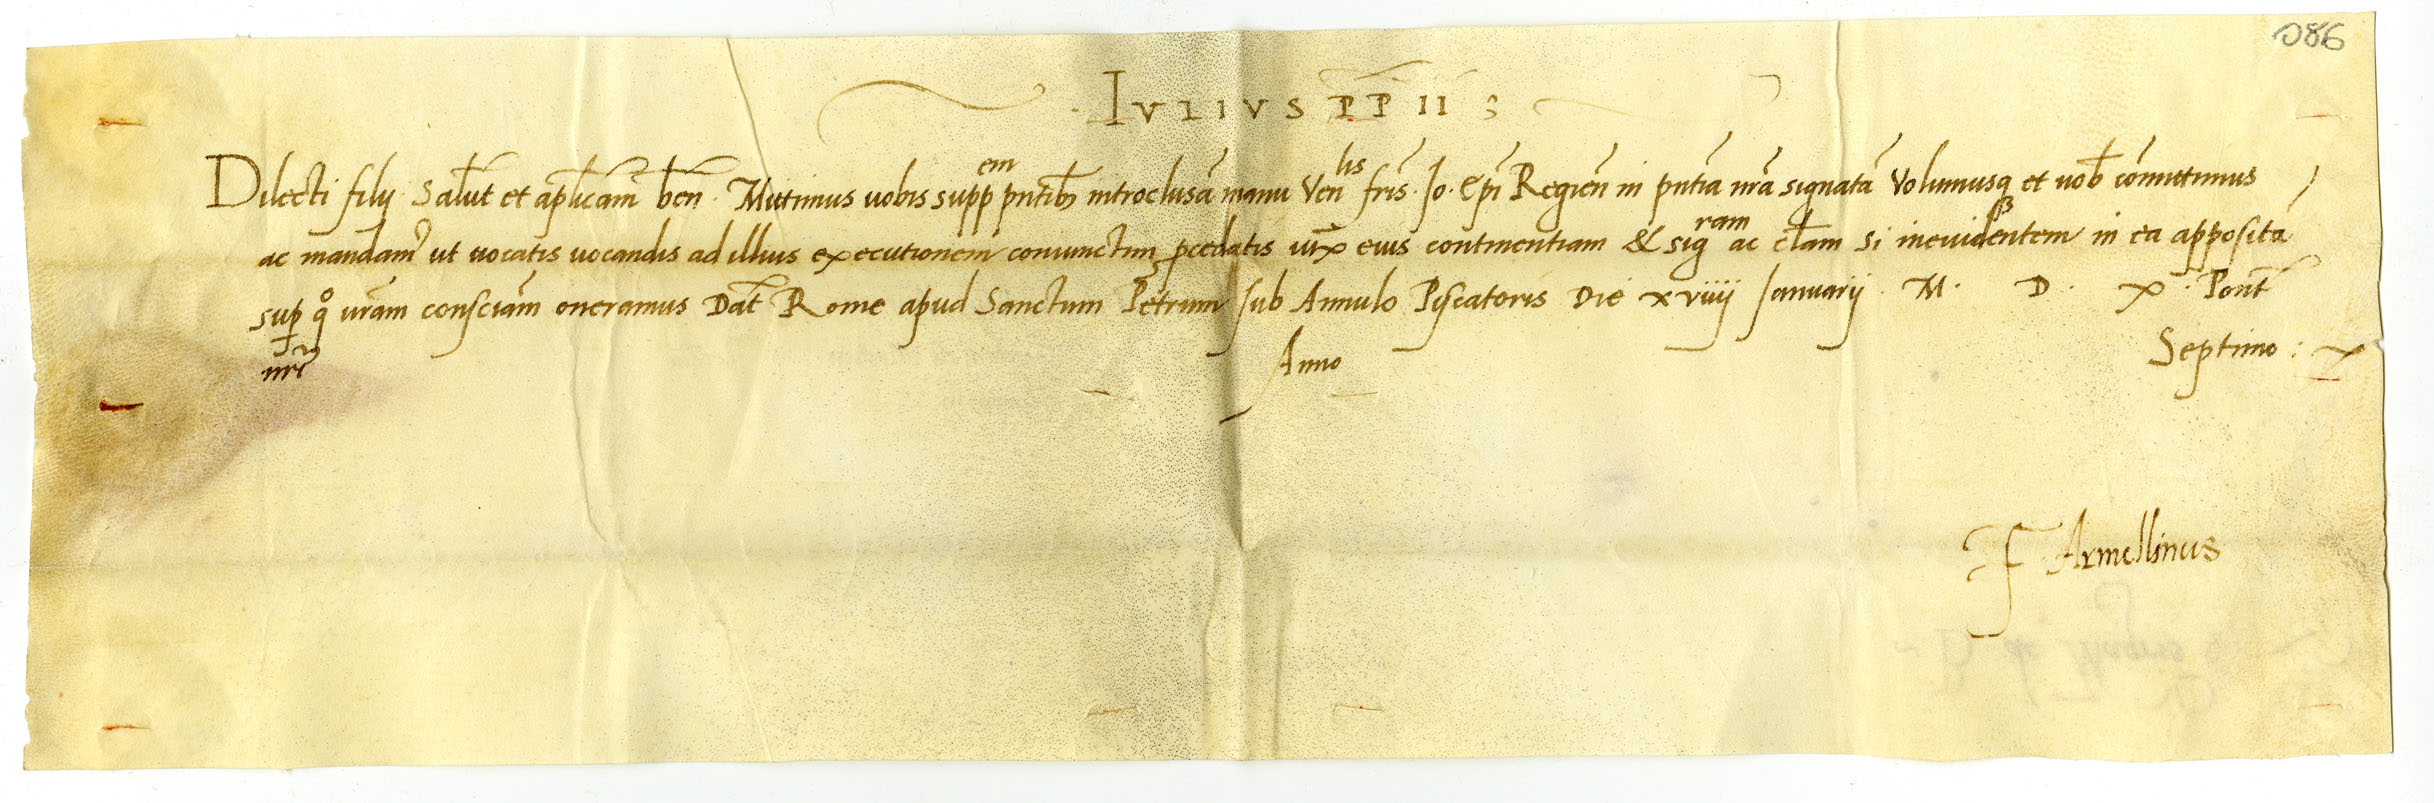 086
Iulius PP II ;
Dilecti filij Salut̄ et aplicam̄ ben̄. Mittimus uobis suppem pn̄tibꝫ introclusā manu Venlis fris̄. Jo. Epī Regien̄ in pn̄tia nr̄a signatā Volumusq et uob̄ com̄ittimus
ac mandam⁹ ut uocatis uocandis ad illius executionem coniunctim ꝓcedatis iux̄ eius continentiam & sigram ac cl̄am si ineuidentem in ea apposita
sup qͦ ur̄am consciām oneramus Dat̄ Rome apud Sanctum Petrum sub Annulo Piscatoris Die xviiij Januarij . M . D . X . Pont̄
nr̄i Anno Septimo :
F. Armellinus